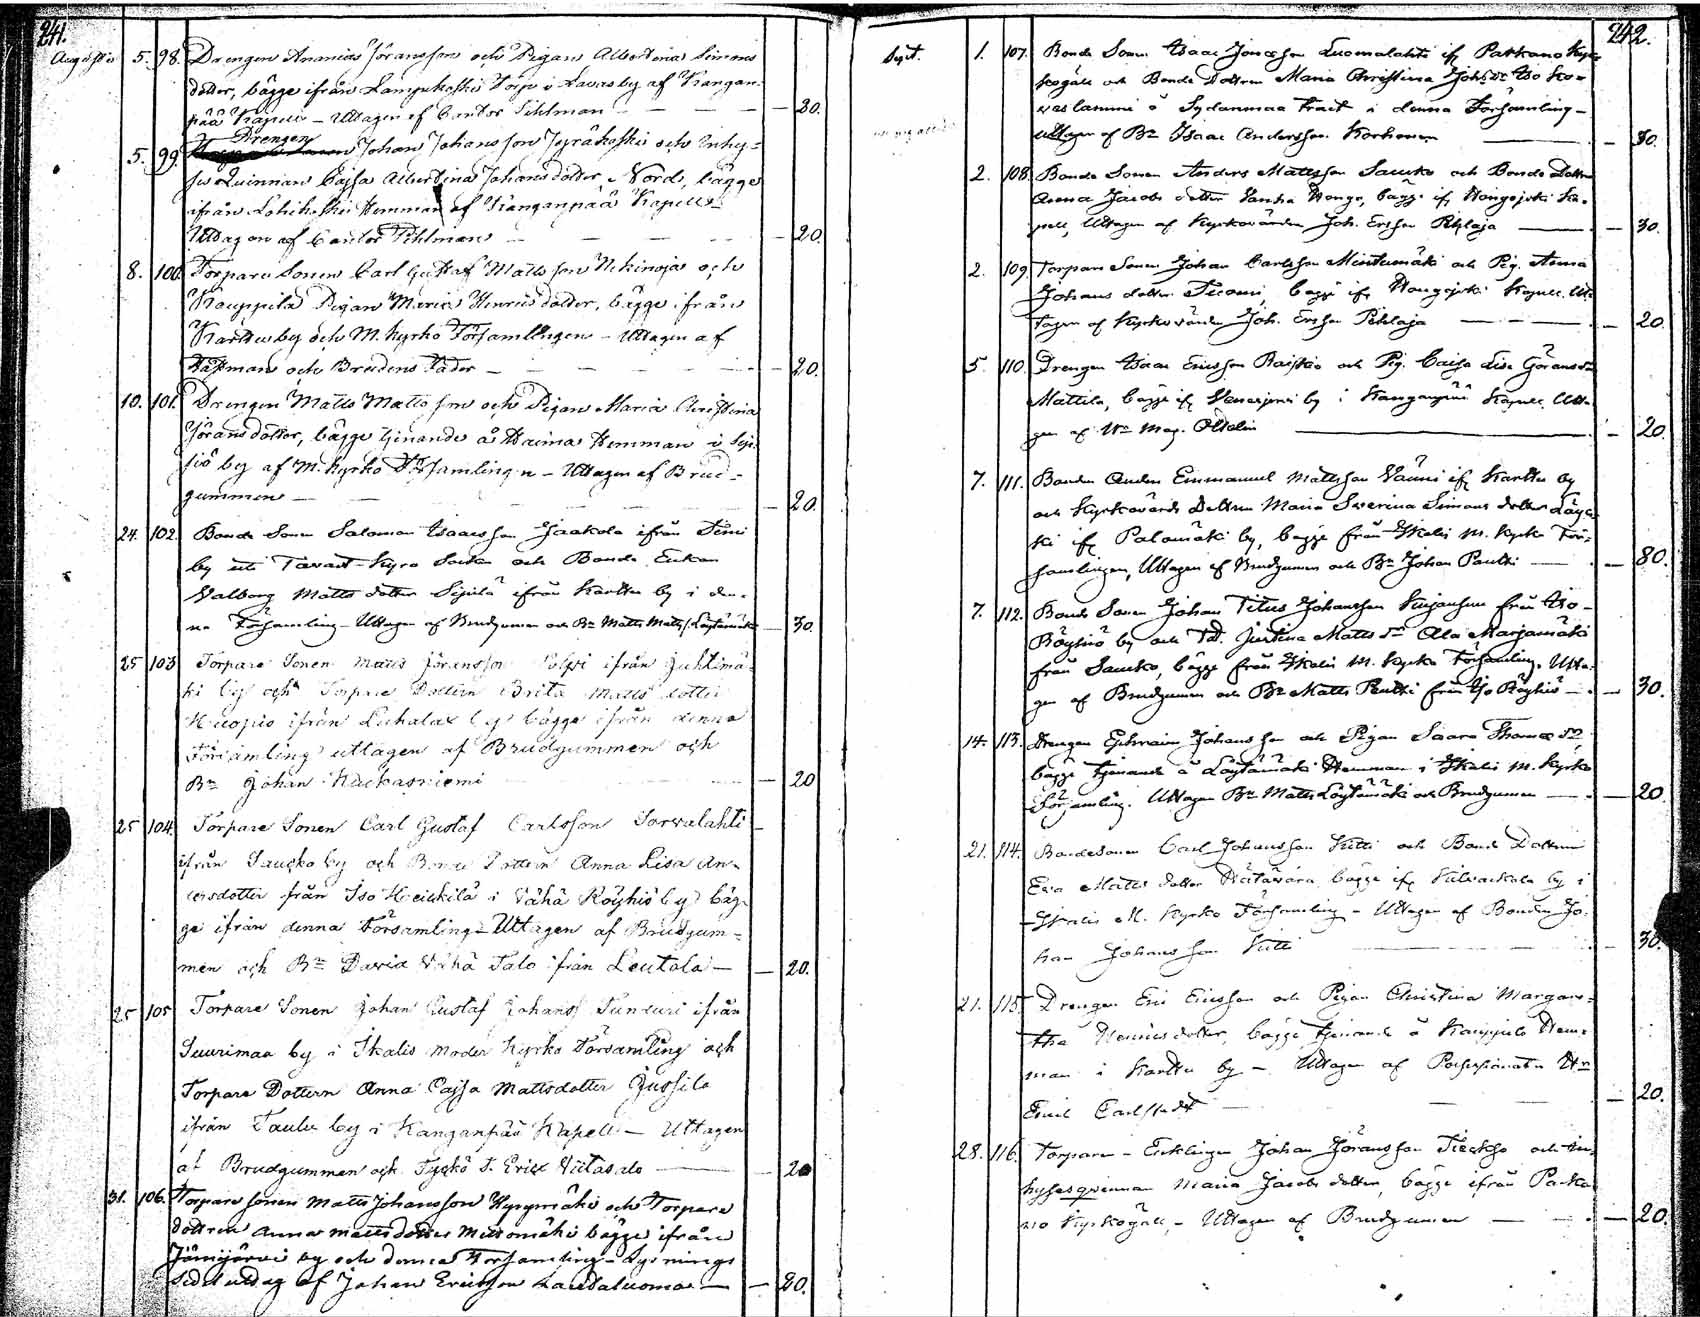 241.
Augusti 5. 98. Drengen Ananias Jöransson och Pigan Albertina Simons
dotter, bägge ifrån Lampukoski Torp i Lavasby af Kangan-
pää Kapell – Uttagen af Cantor Tihlman — 20.
5. 99. Drengen Johan Johansson Jyräkoski och Inhy-
ses Quinnan Cajsa Albertina Johansdotter Nord, bägge
ifrån Lohikoski Hemman af Kanganpää Kapell –
Uttagen af Cantor Tihlman — 20.
8. 100. Torpare Sonen Carl Gustaf Mattsson Uckinoja och
Kauppila Pigan Maria Henricsdotter, bägge ifrån
Karttu by och M. Kyrko Församlingen – Uttagen af
och Brudens Fader — 20.
10. 101. Drengen Matts Mattsson och Pigan Maria Christina
Jöransdotter, bägge tjenande å Haima Hemman i
by af M. Kyrko Församlingen – Uttagen af Brud-
gummen — 20
24. 102. Bonde Sonen Salomon Isaacsson Jaakola ifrån
by uti Tavast-Kyro Socken och Bonde Enkan
Valborg Matts dotter Sipilä ifrån Karttu by i den-
na Församling – Uttagen af Brudgummen och Bn Matts Matts. Löytämäki — 30.
25 103 Torpare Sonen Matts Jöransson ifrån Juhtimä-
ki by och Torpare Dottern Brita Matts dotter
Kuopio ifrån Luhalax by bägge ifrån denna
Församling uttagen af Brudgummen och
Bn Johan Kackasniemi — 20
25 104. Torpare Sonen Carl Gustaf Carlsson Sorvalahti
ifrån Saucko by och Bonde Dottern Anna Lisa An-
dersdotter från Iso Heickilä i Vähä Röyhiö by bäg-
ge ifrån denna Församling – Uttagen af Brudgum-
men och Bn David Vähä Talo ifrån Leutola — 20.
25 105 Torpare Sonen Johan Gustaf Johanss Sunturi ifrån
Suurimaa by i Ikalis moder Kyrko Församling och
Torpare Dottern Anna Cajsa Mattsdotter Jussila
ifrån Taulu by i Kanganpää Kapell – Uttagen
af Brudgummen och Tyckö T. Erick Viitasalo — 20
31. 106. Torpare sonen Matts Johansson Kysymäki och Torpare
dottren Anna mattsdotter Mettomäki bägge ifrån
Jämijärvi by och denna Församling – Lysnings
sedel uttag af Johan Ericsson Laudaluoma — 20.
242.
Sept. 1. 107. Bonde Sonen Isaac Jonasson Luomalahti if. Parkano Kyr-
kogäll och Bonde Dottren Maria Christina Johs Dr Iso Ko-
vaslammi å Sydänmaa trait i denna Församling –
uttagen af Bn Isaac Andersson Korhonen — 30.
2. 108. Bonde Sonen Anders Mattsson Saucko och Bonde Dottren
Anna Jacobs dotter Vanha Hongo, bägge if. Hongojoki Ka-
pell, Uttagen af Kyrkovärden Joh. Ersson Pihlaja — 30.
2. 109. Torpare Sonen Johan Carlsson Mintumäki och Pig. Anna
Johans dotter Tuomi, bägge if. Hongojoki Kapell. Ut-
tagen af Kyrkovärden Joh. Ersson Pihlaja — 20.
5. 110. Drengen Isaac Ericsson Raiskio och Pig. Caisa Lisa Göransdr
Mattila, bägge if. Venesjervi by i Kanganpää Kapell. Utta-
gen af Hr Mag. — 20.
7. 111. Bonden Anders Emmanuel Mattsson Vänni if. Karttu by
och Kyrkovärds Dottren Maria Severina Simons dotter Läy-
ki if. Palomäki by, bägge från Ikalis M. Kyrko För-
samlingen, Uttagen af Brudgumen och Bn Johan Pautti — 80.
7. 112. Bonde Sonen Johan Titus Johansson från Iso-
Röyhiö by och Td. Justina Matts dr Ala Marjamäki
från Saucko, bägge från Ikalis M. Kyrko Församling. Utta-
gen af Brudgumen och Bn Matts Pentti från Iso Röyhiö — 30.
14. 113. Drengen Ephraim Johansson och Pigan Saara Thomæ dr
bägge tjenande å Löytämäki Hemman i Ikalis M. Kyrko
Församling. Uttagen Bn Matts Löytämäki och Brudgumen — 20.
21. 114. Bonde Sonen Carl Johansson Kitti och Bonde Dottren
Eva Matts dotter Hätävara, bägge if. Kilvackala by i
Ikalis M. Kyrko Församling – Uttagen af Bonden Jo-
han Johansson Kitti — 30.
21. 115. Drengen Eric Ericsson och Pigan Christina Margare-
tha Henricsdotter, bägge tjenande å Kauppila Hem-
man i Karttu by – Uttagen af Possessionaten Hr
Emil Carlstedt — 20.
28. 116. Torpare – Encklingen Johan Jöransson och In-
hysesqvinnan Maria Jacobs dotter, bägge ifrån Parka-
no Kyrkogäll, – Uttagen af Brudgumen — 20.